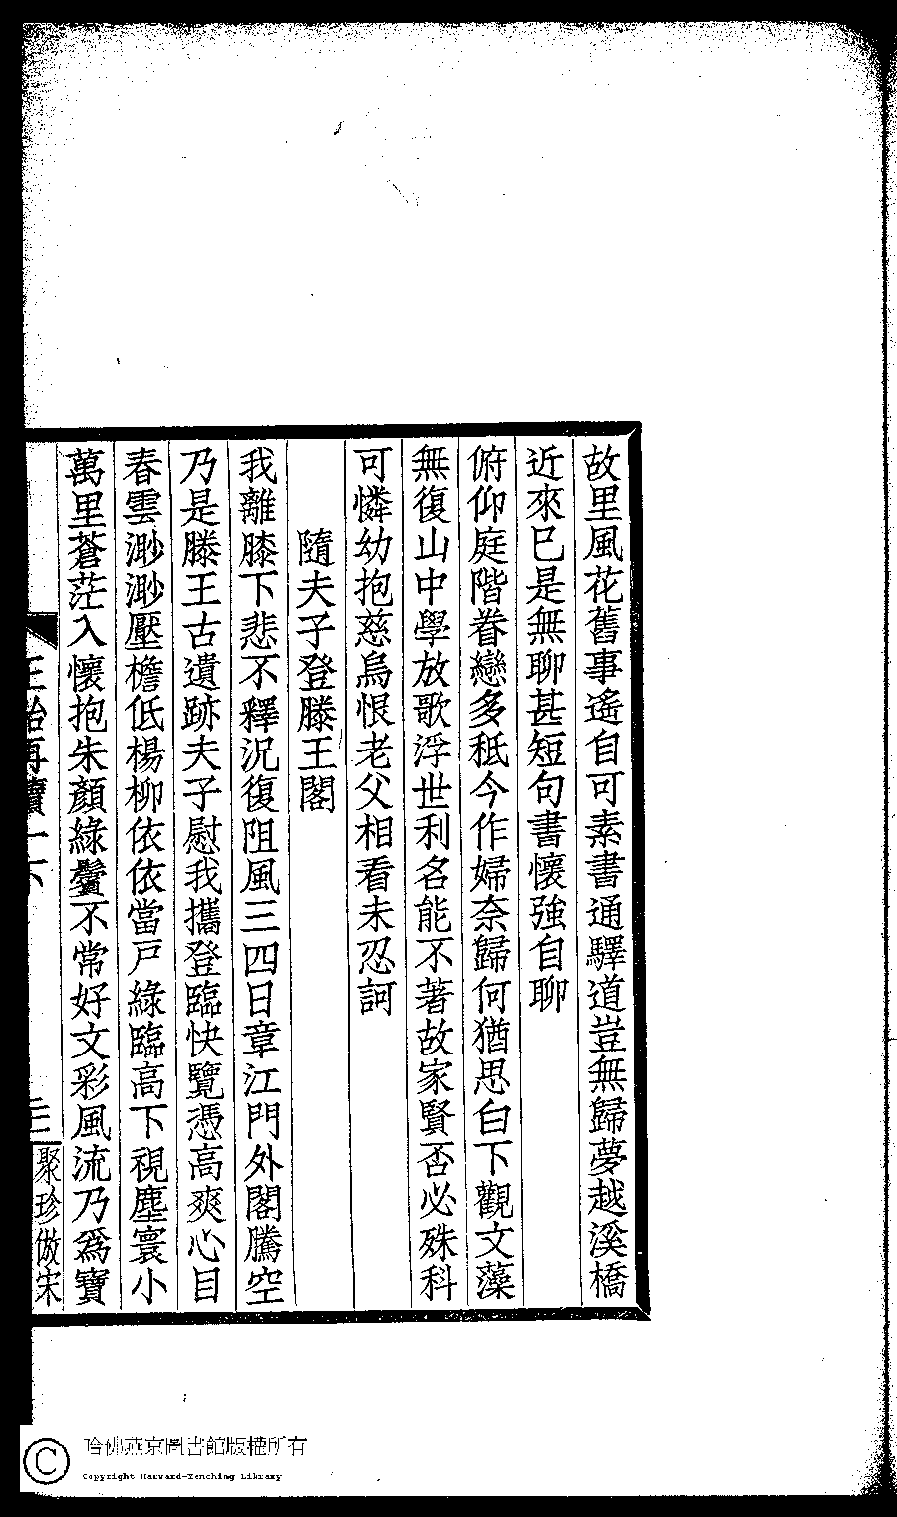 故里風花舊事遙自可素書通驛道豈無歸夢越溪橋
近來已是無聊甚短句書懷強自聊
俯仰庭階眷戀多秪今作婦奈歸何猶思白下觀文藻
無復山中學放歌浮世利名能不著故家賢否必殊科
可憐幼抱慈烏恨老父相看未忍訶
隨夫子登滕王閣
我離膝下悲不釋況復阻風三四日章江門外閣騰空
乃是滕王古遺跡夫子慰我攜登臨快覽憑高爽心目
春雲渺渺壓檐低楊柳依依當戶綠臨高下視塵寰小
萬里蒼茫入懷抱朱顏綠鬢不常好文彩風流乃為寶
聚珍倣宋
哈佛燕京圖書館版權所有
Copyright Harvard-Yenching Library